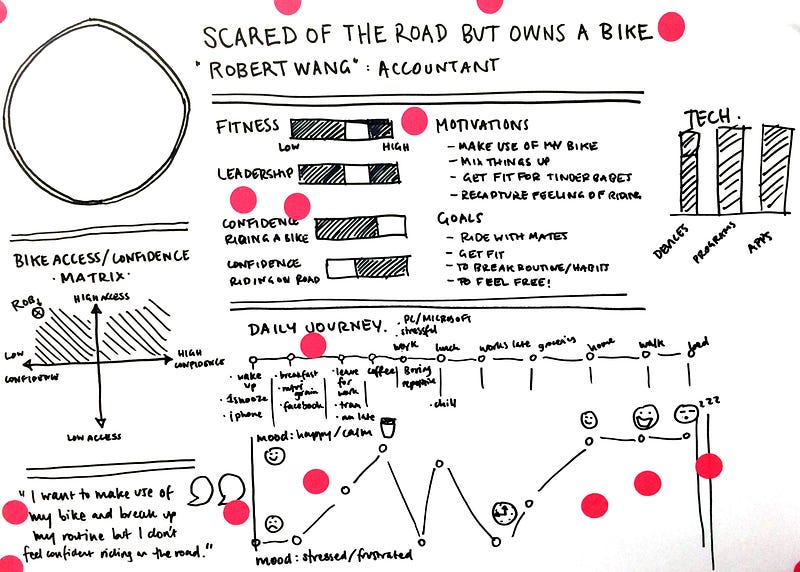 SCARED OF THE ROAD BUT OWNS A BIKE
"ROBERT WANG" : ACCOUNTANT
FITNESS
LOW HIGH
LEADERSHIP
CONFIDENCE
RIDING A BIKE
CONFIDENCE
RIDING ON ROAD
MOTIVATIONS
- MAKE USE OF MY BIKE
- MIX THINGS UP
- GET FIT FOR TINDER BABES
- RECAPTURE FEELING OF RIDING
GOALS
- RIDE WITH MATES
- GET FIT
- TO BREAK ROUTINE/HABITS
- TO FEEL FREE!
TECH.
DEVICES
PROGRAMS
APPS
BIKE ACCESS/CONFIDENCE
· MATRIX·
ROB
HIGH ACCESS
LOW
CONFIDENCE
HIGH
CONFIDENCE
LOW ACCESS
"I want to make use of
my bike and break up
my routine but I don't
feel confident riding on the road."
DAILY JOURNEY.
· PC/MICROSOFT
· stressful
work lunch works late groceries home walk bed
· wake
up
· 1 snooze
· iphone
· breakfast
· nutri
grain
· facebook
· leave
for
work
· tram
coffee
Boring
repetitive
· chill
mood: happy/calm
zzz
mood: stressed/frustrated